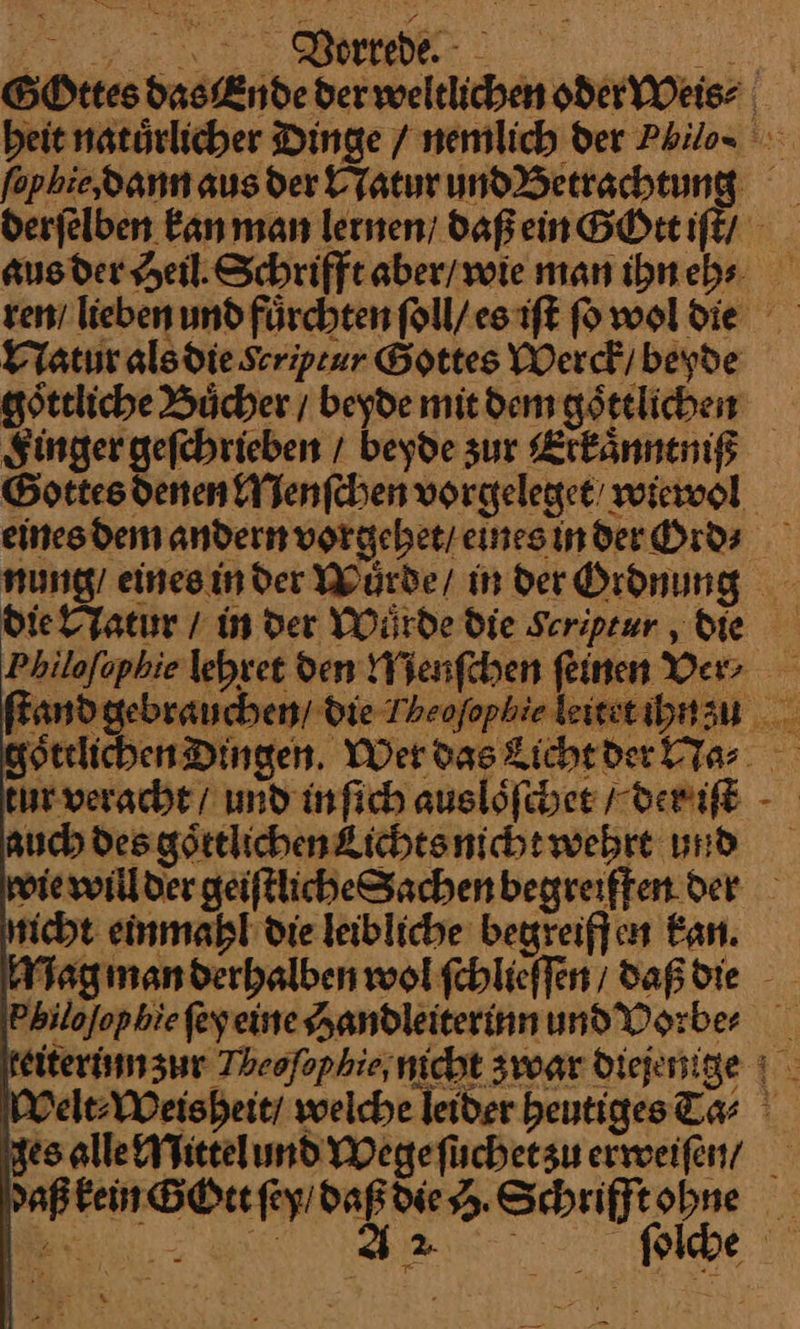 Vorrede.
GOttes das Ende der weltlichen oder Weis⸗
heit natuͤrlicher Dinge / nemlich der Philo-
ſophie, dann aus der Natur und Betrachtung
derſelben kan man lernen / daß ein GOtt iſt /
aus der Heil. Schrifft aber / wie man ihn eh⸗
ren / lieben und fuͤrchten ſoll / es iſt ſo wol die
Natur als die Scriptur Gottes Werck / beyde
goͤttliche Buͤcher / beyde mit dem goͤttlichen
Finger geſchrieben / beyde zur Erkaͤnntniß
Gottes denen Menſchen vorgeleget / wiewol
eines dem andern vorgehet / eines in der Ord⸗
nung / eines in der Wuͤrde / in der Ordnung
die Natur / in der Wuͤrde die Scriptur, die
Philoſophie lehret den Menſchen ſeinen Ver⸗
ſtand gebrauchen / die Theoſophie leitet ihn zu
goͤttlichen Dingen. Wer das Licht der Na⸗
tur veracht / und in ſich ausloͤſchet / der iſt
auch des goͤttlichen Lichts nicht wehrt und
wie will der geiſtliche Sachen begreiffen der
nicht einmahl die leibliche begreiffen kan.
Mag man derhalben wol ſchlieſſen / daß die
Philoſophie ſey eine Handleiterinn und Vorbe⸗
reiterinn zur Theoſophie, nicht zwar diejenige
Welt⸗Weisheit / welche leider heutiges Ta⸗
ges alle Mittel und Wege ſuchet zu erweiſen /
daß kein GOtt ſey / daß die H. Schrifft ohne
A 2 ſolche